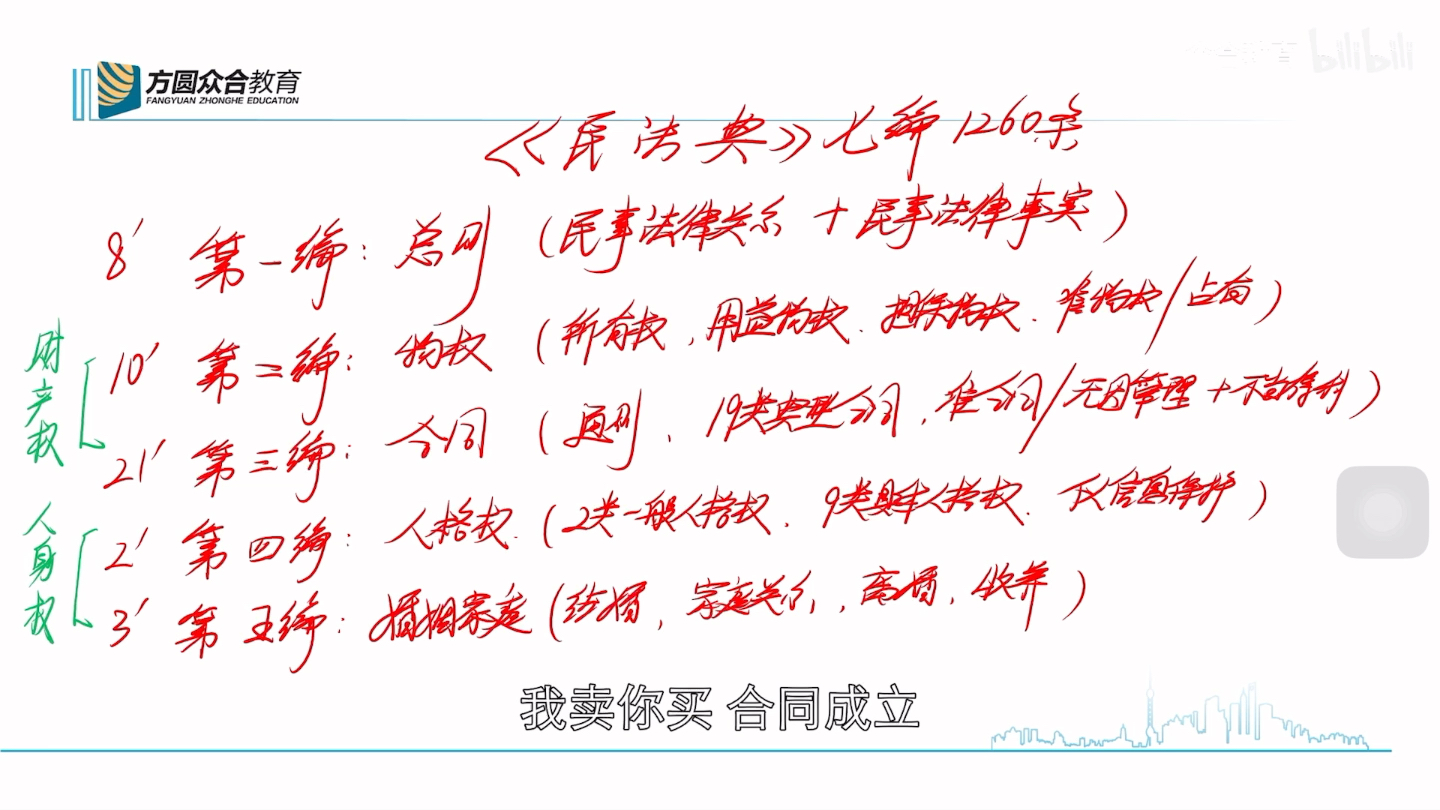 方圆众合教育
FANGYUAN ZHONGHE EDUCATION
bilibili
《民法典》七编1260条
8' 第一编：总则（民事法律关系＋民事法律事实）
财产权
10' 第二编：物权（所有权、用益物权、担保物权、准物权/占有）
21' 第三编：合同（通则、19类典型合同、准合同/无因管理＋不当得利）
人身权
2' 第四编：人格权（2类一般人格权、9类具体人格权、个人信息保护）
3' 第五编：婚姻家庭（结婚、家庭关系、离婚、收养）
我卖你买 合同成立